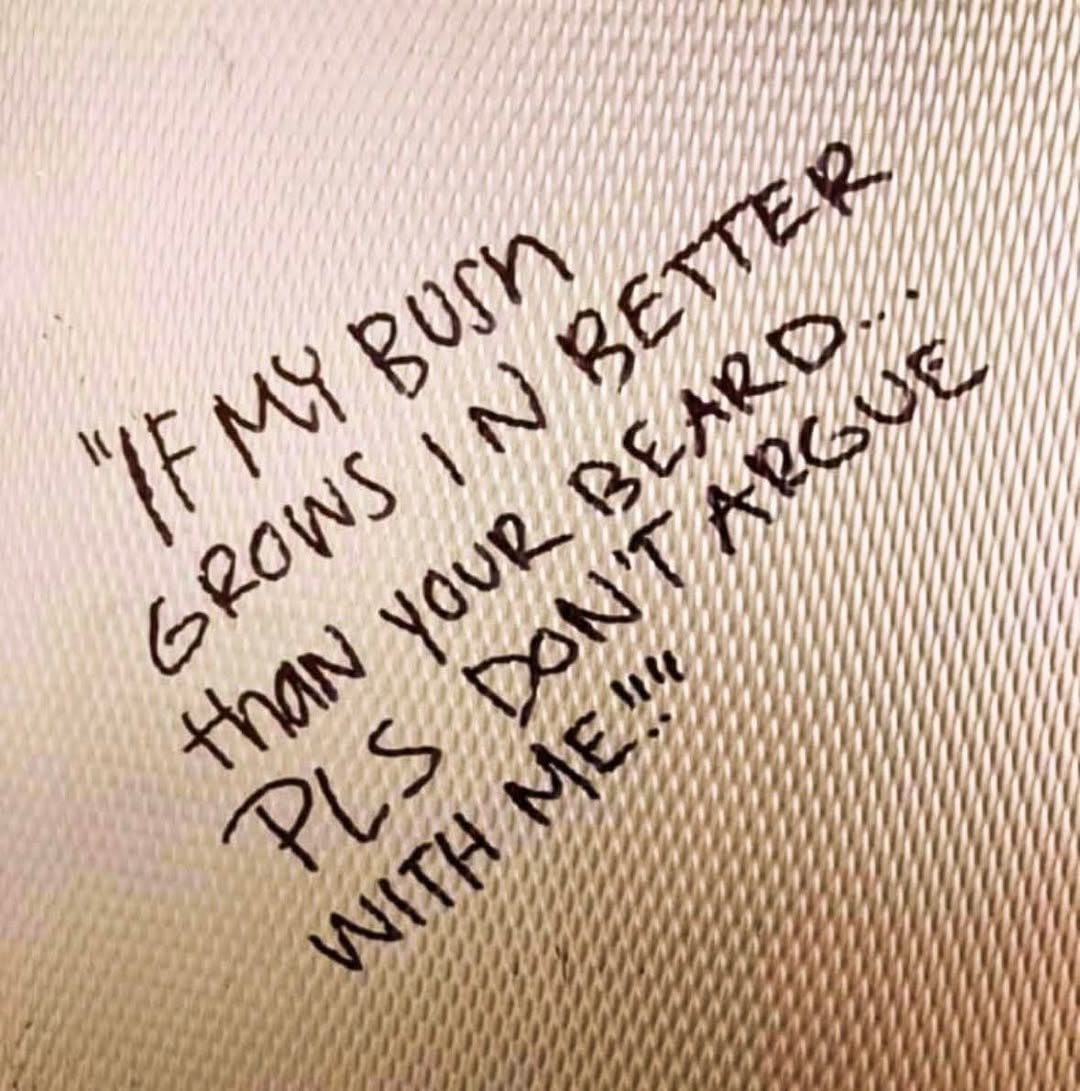 "IF MY BUSh
GROWS IN BETTER
thaN YOUR BEARD...
PLS DON'T ARGUE
WITH ME!!"